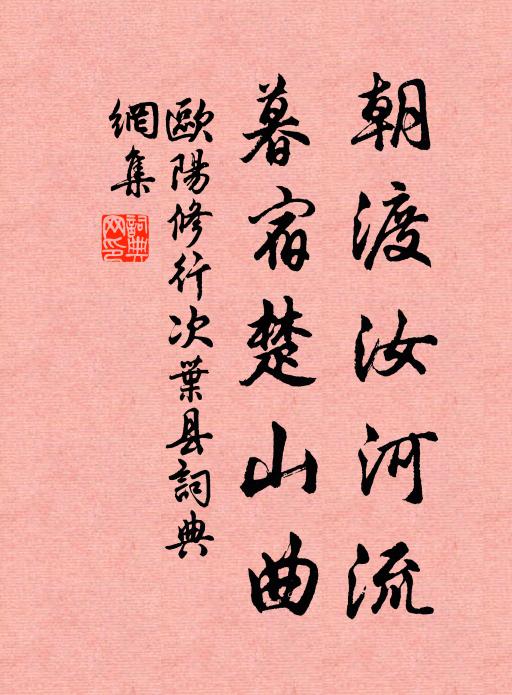 朝渡汝河流
暮宿楚山曲
歐陽修行次葉县詞典
網集
詞典
网印